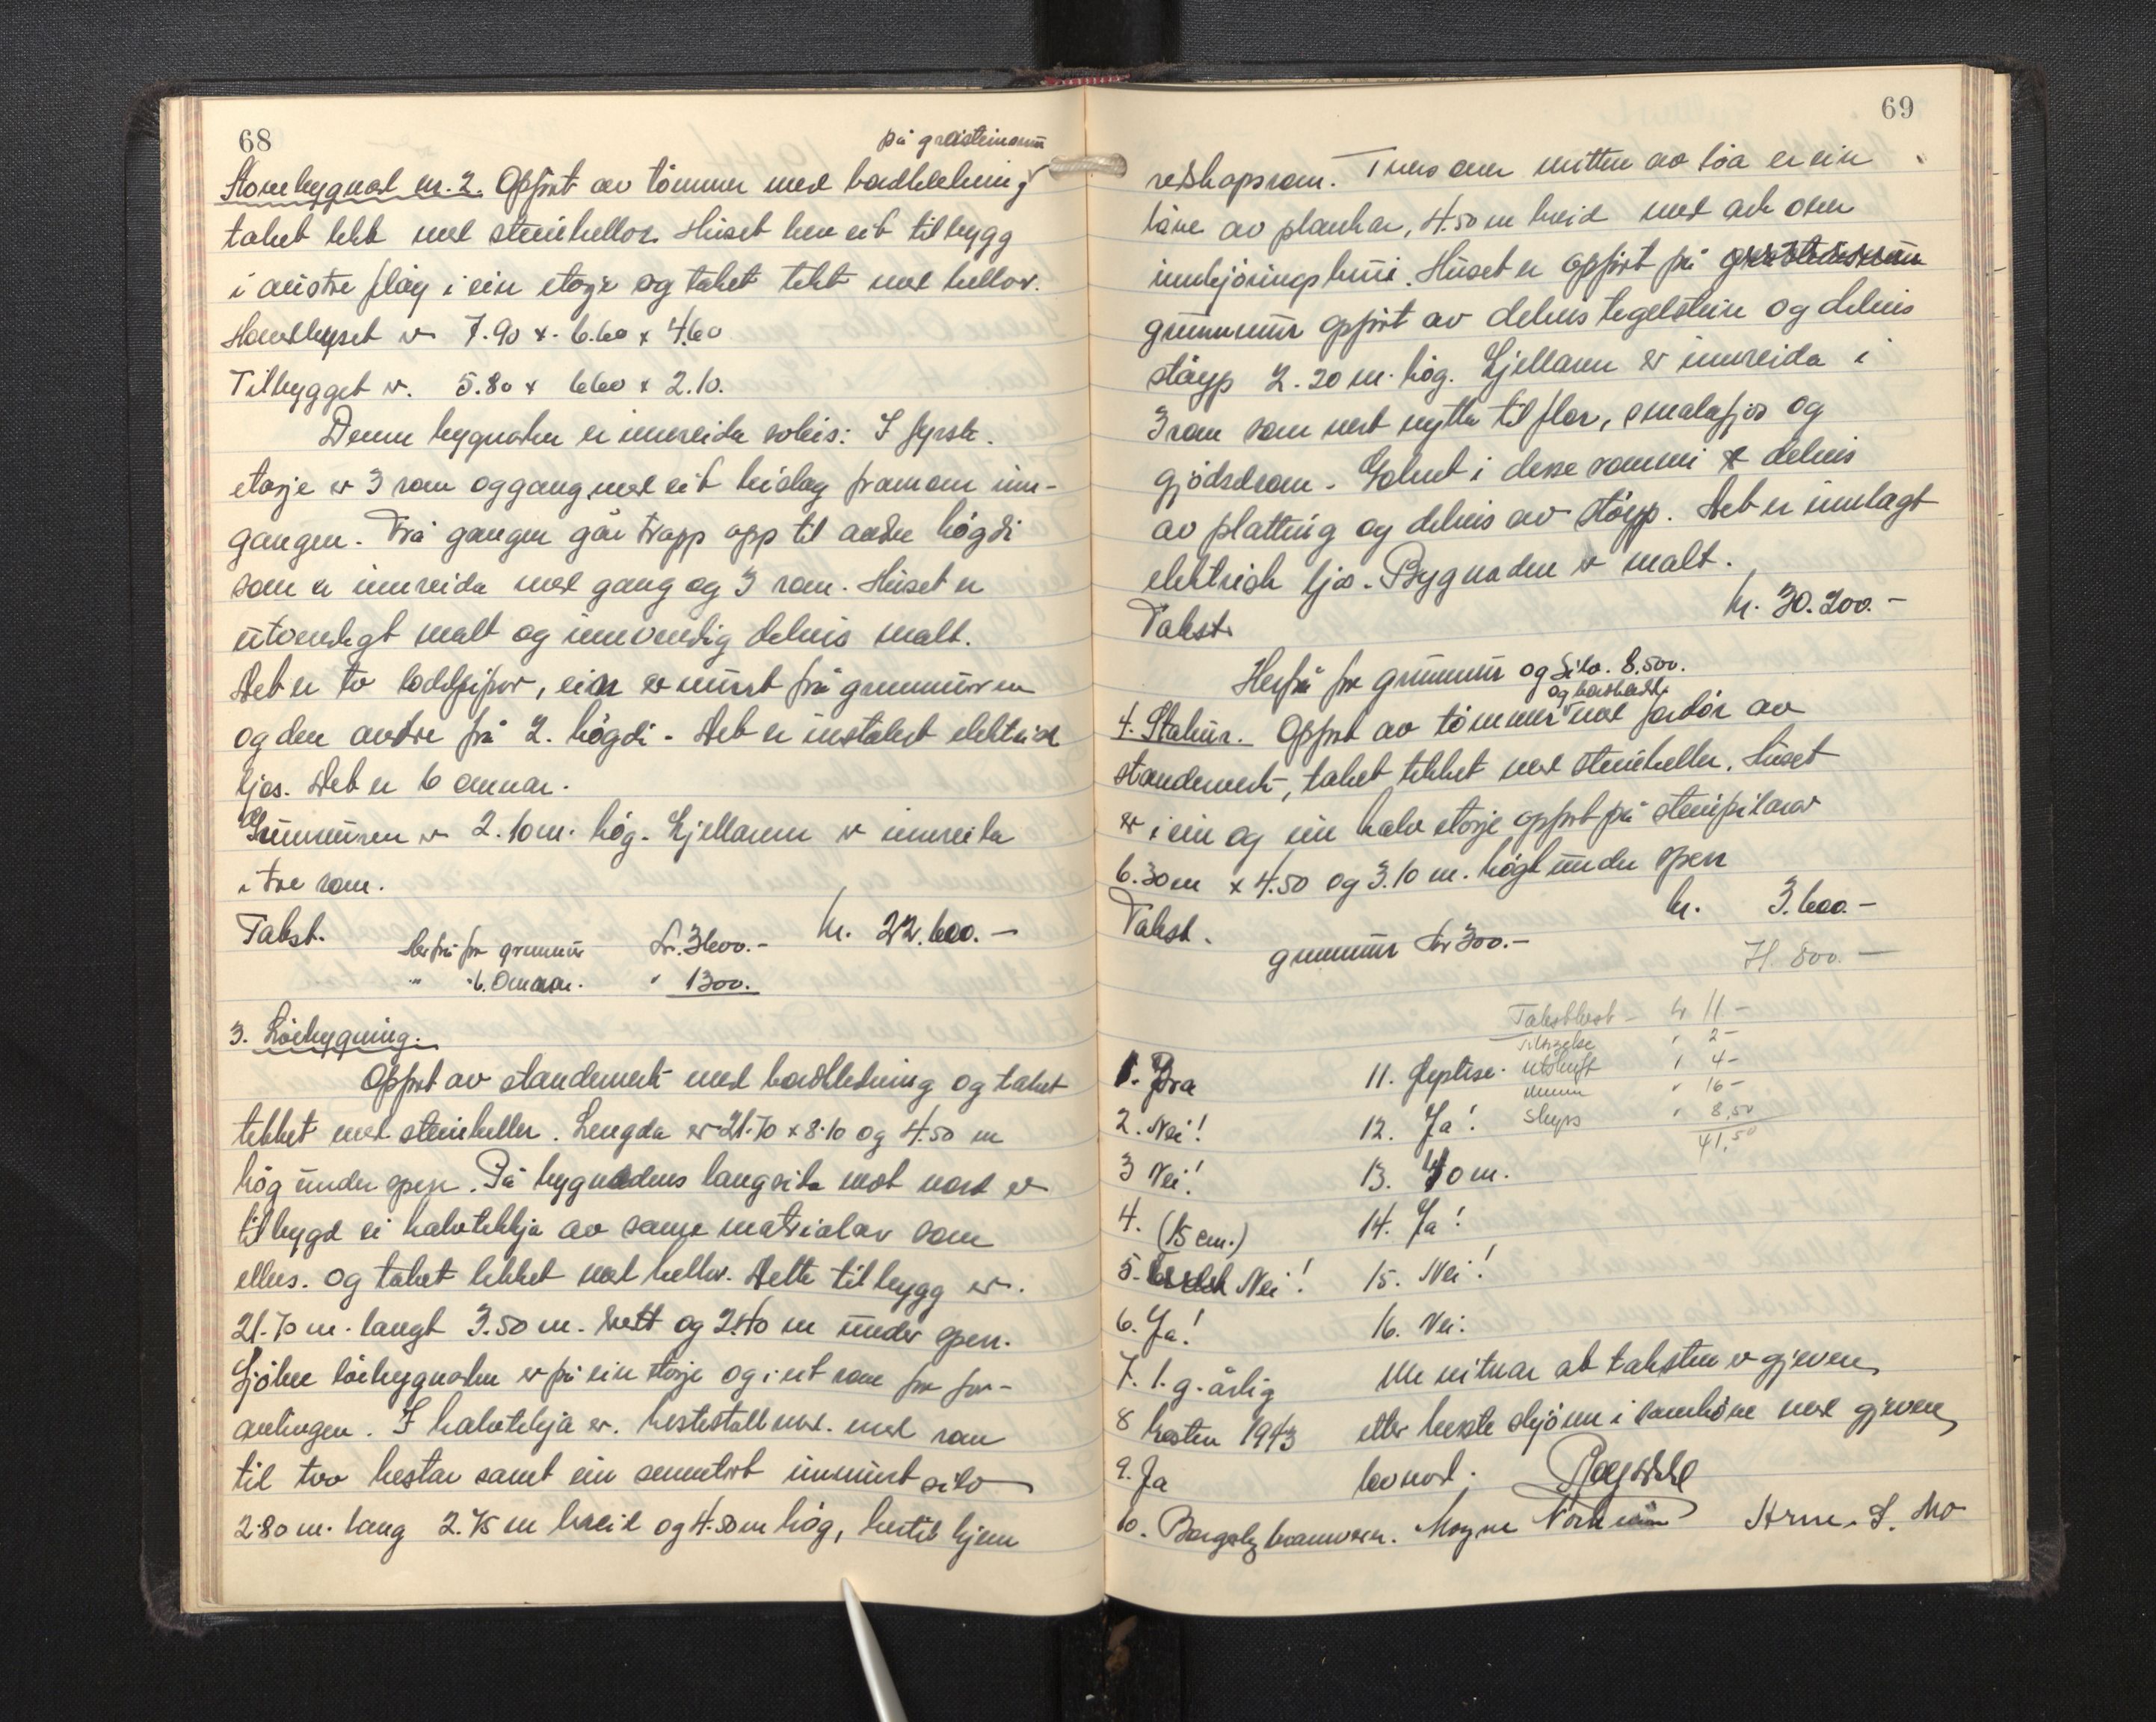 68
på gråsteinsmur
Stovebygnad nr. 2. Oppført av tømmer med bordkledning
taket tekt med steinhellor. Huset hev eit tilbygg
i austre fløy i ein etasje og taket tekt med hellor.
Hovudhuset er 7.90 x 6.60 x 4.60
Tilbygget er 5.80 x 6.60 x 2.10.
Denne bygnaden er innreida soleis: I fyrste
etasje er 3 rom og gang med eit bislag framom inn-
gangen. Frå gangen går trapp opp til andre høgdi
som er innreida med gang og 3 rom. Huset er
utvendigt malt og innvendig delvis malt.
Det er to loddpipor, ein er murt frå grunnmuren
og den andre frå 2. høgdi. Det er installert elektrisk
ljos. Det er 6 omnar.
Grunnmuren er 2.10 m. høg. Kjellaren er innreida
i tre rom.
Takst. kr. 22.600.-
Herfrå for grunnmur kr. 3600.-
" " 6. Omnar. " 1300.
3. Løebygning.
Oppført av standerverk med bordkledning og taket
tekket med steinheller. Lengda er 21.70 x 8.10 og 4.50 m
høg under sperr. På bygnadens langsida mot nord er
tilbygd ei halvtekkja av same materialar som
elles. og taket tekket med hellor. Dette tilbygg er
21.70 m. langt 3.50 m. bredt og 2.40 m under sperr.
Sjølve løebygnaden er på ein etasje og i eit rom for for-
anlingen. I halvtekkja er hestestall med rom
til tvo hestar samt ein sementert innmurt silo
2.80 m. lang 2.75 m breid og 4.50 m høg, hertil kjem
69
reidskapsrom. Tvers over mitten av løa er ein
låve av plankar, 4.50 m breid med ark over
innkjøringsbrui. Huset er oppført på
grunnmur oppført av delvis tegelstein og delvis
støyp 2.20 m. høg. Kjellaren er innreida i
3 rom som vert nytta til flor, smalafjøs og
gjødselrom. Golvet i desse rommi er delvis
av platting og delvis av støyp. Det er innlagt
elektrisk ljos. Bygnaden er malt.
Takst. kr. 30.200.-
Herfrå for grunnmur og silo. 8.500.
og bordkledd
4. Stabur. Oppført av tømmer med fordør av
standerverk, taket tekket med steinheller. Huset
er i ein og ein halv etasje oppført på steinpilarar
6.30 m x 4.50 og 3.10 m. høgt under sperr
Takst. kr. 3.600.-
grunnmur kr 300.-
H. 800.-
Takstkost - kr 11.-
" 2-
Utskrift " 4-
" 16-
Skyss " 8,50
41,50
1. Bra
2. Nei!
3 Nei!
4. (15 cm.)
5. Nei!
6. Ja!
7. 1. g. årlig
8 hosten 1943
9. Ja
10. brannvern.
11.
12. Ja!
13. 40 m.
14. Ja!
15. Nei!
16. Nei.
Me vitnar at taksten er gjeven
etter beste skjønn i samhøve med gjeven
lovnad.
Arne S. Mo